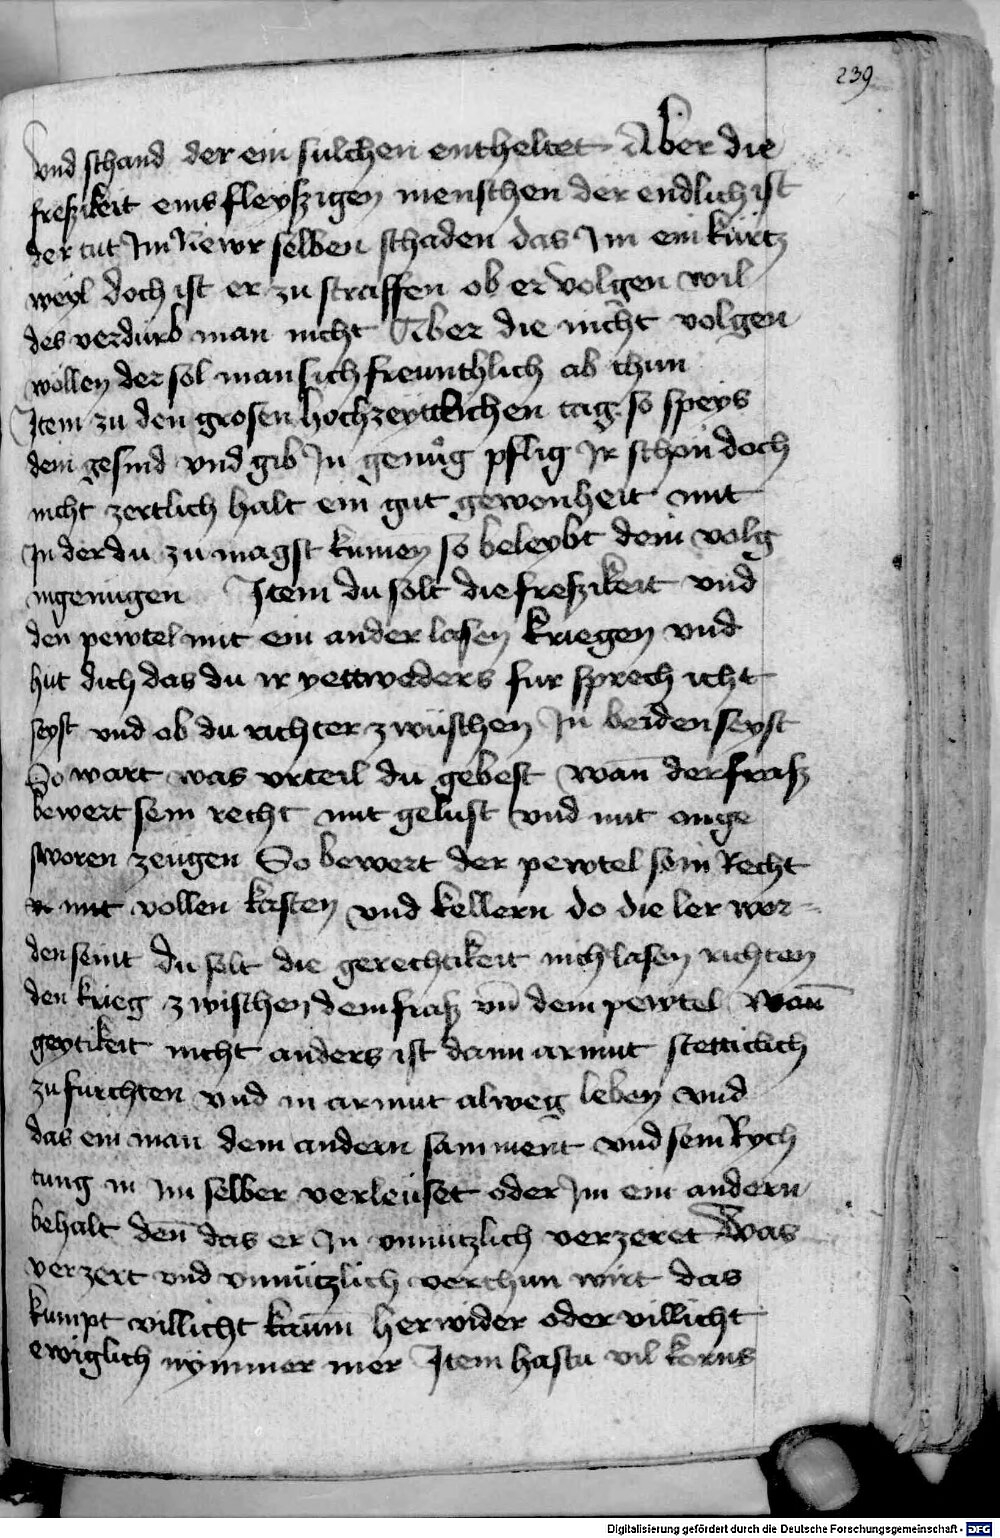 239
vnd schand der ein sulchen entheltet Aber die
freszikeit eins fleyszigen menschen der endlich ist
der tut Im Newr selben schaden das Im ein kurtz
weyl doch ist er zu straffen ob er volgen wil
des verdurb man nicht Aber die nicht volgen
wollen der sol man sich freunthlich ab thun
Item zu den grosen hochzeyttlichen tag so speys
dein gesind vnd gib In genug pflig Ir schon doch
nicht zertlich halt ein gut gewonheit mit
In der du zu magst kumen so beleybt dein volg
ingenugen Item du solt die freszikeit vnd
den pewtel mit ein ander lasen kriegen vnd
hut dich das du ir yettweders fur sprech icht
seyst vnd ob du richter zwüschen In beiden seyst
So wart was vrteil du gebest wan̄ der frasz
bewert sein recht mit gelust vnd mit ange
sworen zeugen So bewert der pewtel sein Recht
mit vollen kasten vnd kellern do die ler wor-
den seint du solt die gerechtikeit nicht lasen richten
den krieg zwischen dem frasz vn̄ dem pewtel Wan̄
geytikeit nicht anders ist dann armut stetticlich
zu furchten vnd in armut alweg leben vnd
das ein man dem andern samment vnd sein Rych
tung in im selber verleuset oder Im ein andern
behalt den̄ das er In vnnutzlich verzeret Was
verzert vnd vnnützlich verthun wirt das
kumpt villicht kaūm herwider oder villicht
ewiglich nymmer mer Item hastu vil korns
Digitalisierung gefördert durch die Deutsche Forschungsgemeinschaft - DFG